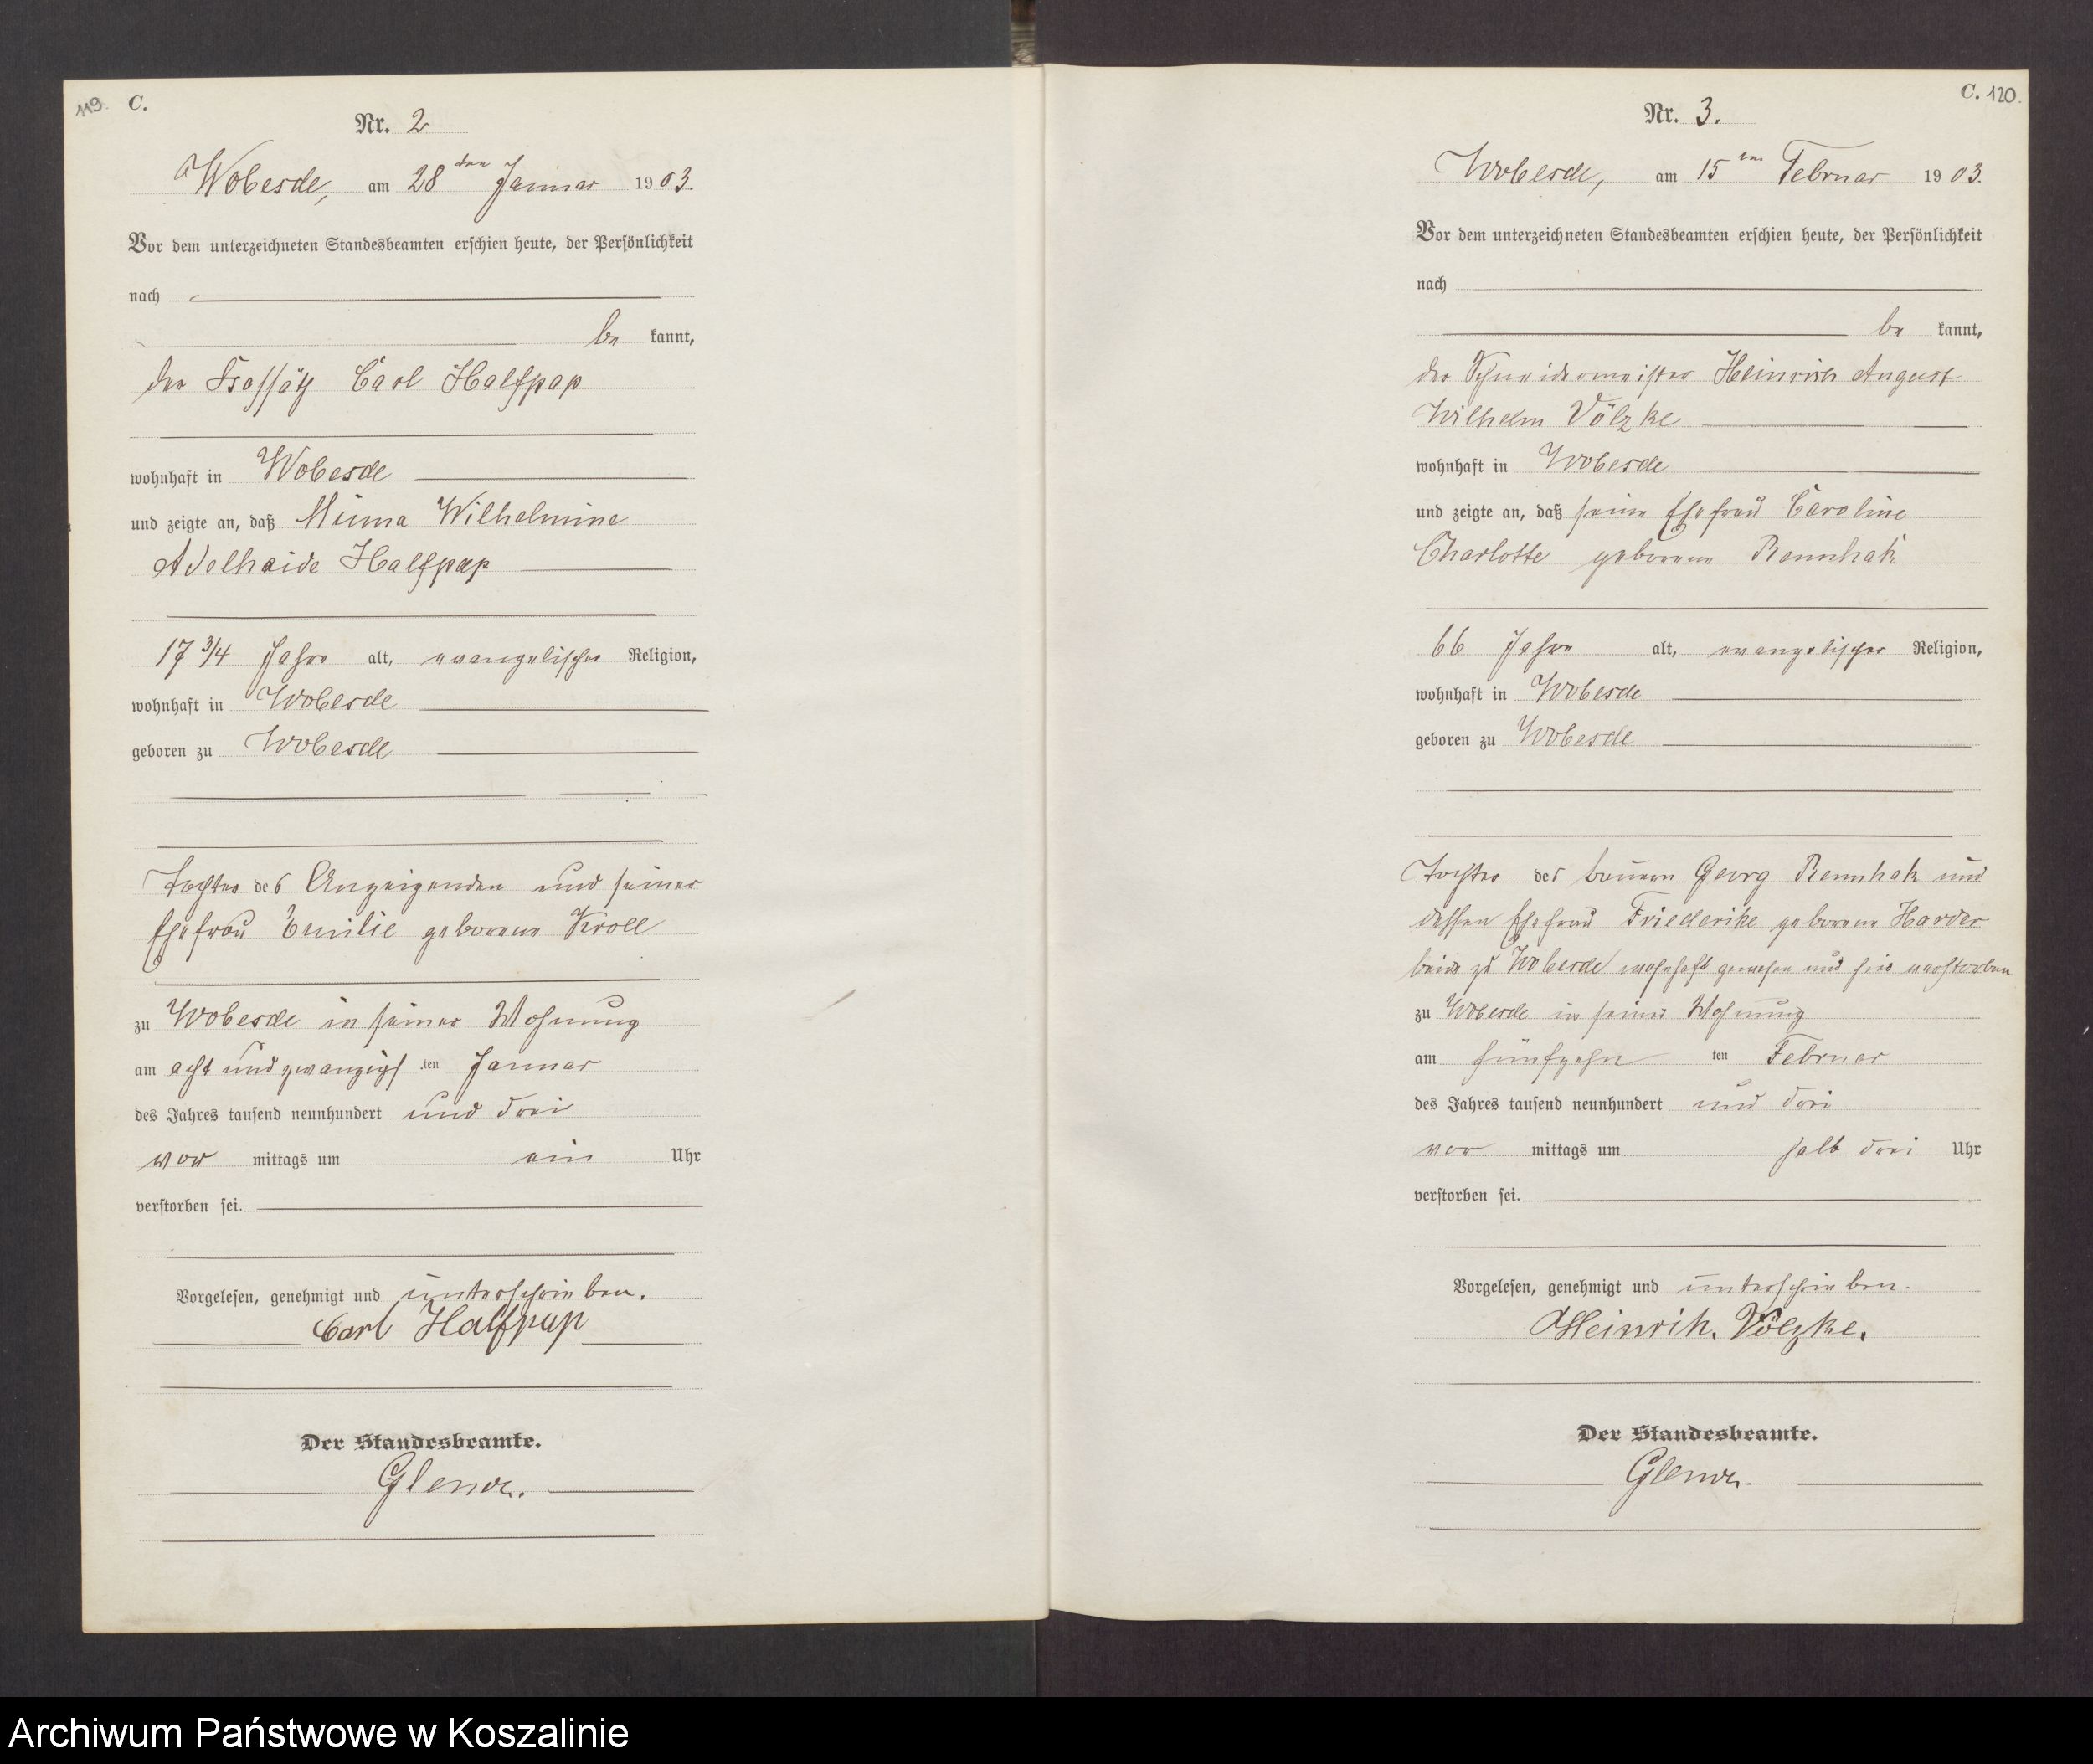 119. C.
Nr. 2
Wobesde, am 28ten Januar 1903.
Vor dem unterzeichneten Standesbeamten erschien heute, der Persönlichkeit
nach
be kannt,
der Carl Halfpap
wohnhaft in Wobesde
und zeigte an, daß Minna Wilhelmine
Adelhaide Halfpap
17 3/4 Jahre alt, evangelischer Religion,
wohnhaft in Wobesde
geboren zu Wobesde
Tochter des Anzeigenden und seiner
Ehefrau Emilie geborene Kroll
zu Wobesde in seiner Wohnung
am acht und zwanzigsten Januar
des Jahres tausend neunhundert und drei
vor mittags um ein Uhr
verstorben sei.
Vorgelesen, genehmigt und unterschrieben.
Carl Halfpap
Der Standesbeamte.
C. 120.
Nr. 3.
Wobesde, am 15ten Februar 1903.
Vor dem unterzeichneten Standesbeamten erschien heute, der Persönlichkeit
nach
be kannt,
der Schneidermeister Heinrich August
Wilhelm Völzke
wohnhaft in Wobesde
und zeigte an, daß seine Ehefrau Caroline
Charlotte geborene Rennhak
66 Jahre alt, evangelischer Religion,
wohnhaft in Wobesde
geboren zu Wobesde
Tochter des Bauern Georg Rennhak und
dessen Ehefrau Friederike geborene Harder
beide zu Wobesde wohnhaft gewesen und hier verstorben
zu Wobesde in seiner Wohnung
am fünfzehnten Februar
des Jahres tausend neunhundert und drei
vor mittags um halb drei Uhr
verstorben sei.
Vorgelesen, genehmigt und unterschrieben.
Heinrih. Völzke.
Der Standesbeamte.
Archiwum Państwowe w Koszalinie